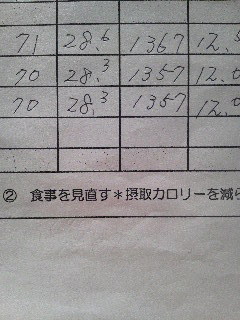 71 28.6 1367 12.
70 28.3 1357 12.0
70 28.3 1357 12.0
② 食事を見直す＊摂取カロリーを減ら